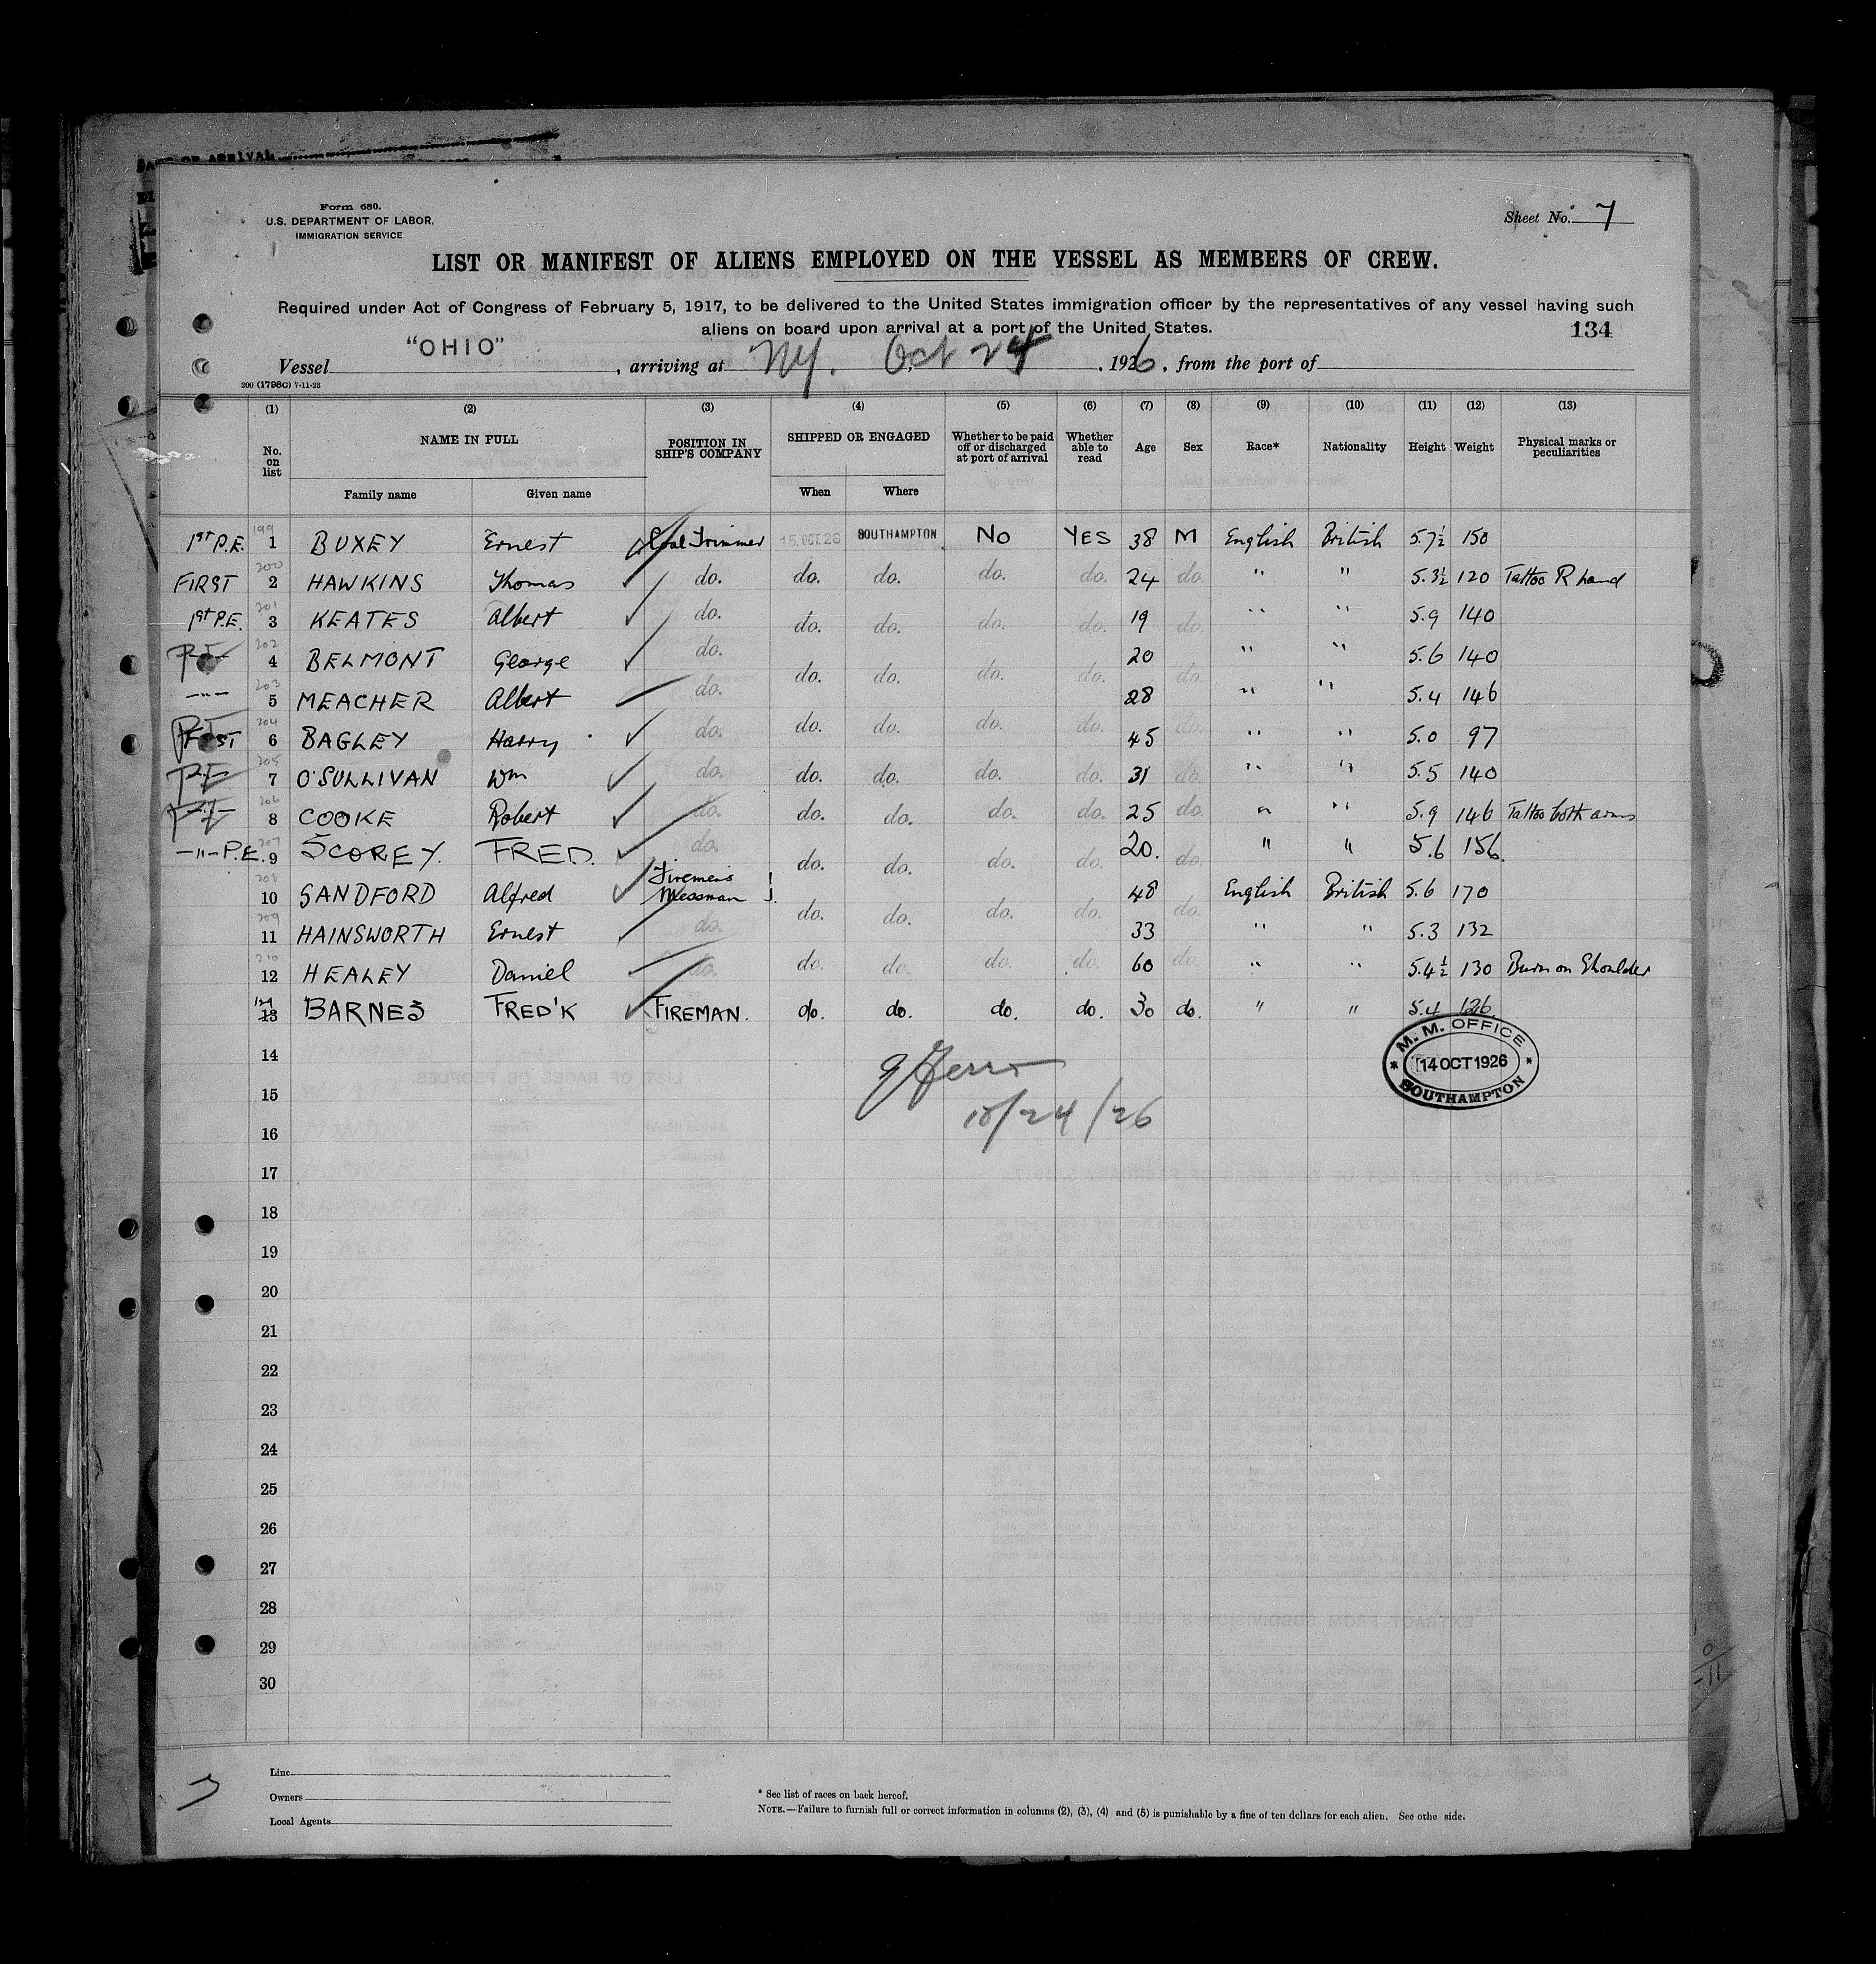 Form 680.
U.S. DEPARTMENT OF LABOR.
IMMIGRATION SERVICE
Sheet No. 7
LIST OR MANIFEST OF ALIENS EMPLOYED ON THE VESSEL AS MEMBERS OF CREW.
Required under Act of Congress of February 5, 1917, to be delivered to the United States immigration officer by the representatives of any vessel having such
aliens on board upon arrival at a port of the United States.
134
Vessel "OHIO", arriving at NY. Oct 24, 1926, from the port of
200 (1798C) 7-11-23
(1) (2) (3) (4) (5) (6) (7) (8) (9) (10) (11) (12) (13)
No. on list NAME IN FULL POSITION IN SHIP'S COMPANY SHIPPED OR ENGAGED Whether to be paid off or discharged at port of arrival Whether able to read Age Sex Race* Nationality Height Weight Physical marks or peculiarities
Family name Given name When Where
1st P.E. 199 1 BUXEY Ernest Coal Trimmer 15.OCT.26 SOUTHAMPTON No YES 38 M English British 5.7½ 150
FIRST 200 2 HAWKINS Thomas do. do. do. do. do. 24 do. " " 5.3½ 120 Tattoo R hand
1st P.E. 201 3 KEATES Albert do. do. do. do. do. 19 do. " " 5.9 140
P.E. 202 4 BELMONT George do. do. do. do. do. 20 do. " " 5.6 140
-"- 203 5 MEACHER Albert do. 28 " " 5.4 146
204 6 BAGLEY Harry do. do. do. do. do. 45 do. " " 5.0 97
P.E. 205 7 O'SULLIVAN Wm do. do. do. do. do. 31 do. " " 5.5 140
206 8 COOKE Robert do. do. do. do. do. 25 do. " " 5.9 146 Tattoo both arms
-"- P.E. 207 9 SCOREY. FRED. do. do. do. do. do. 20. do. " " 5.6 156.
208 10 SANDFORD Alfred Firemens Messman 48 English British 5.6 170
209 11 HAINSWORTH Ernest do. do. do. do. do. 33 do. " " 5.3 132
210 12 HEALEY Daniel do. do. do. do. do. 60 do. " " 5.4½ 130 Burn on Shoulder
13 BARNES FRED'K FIREMAN. do. do. do. do. 30 do. " " 5.4 126.
14
M. M. OFFICE
14 OCT 1926
SOUTHAMPTON
15
10/24/26
16
17
18
19
20
21
22
23
24
25
26
27
28
29
30
Line
Owners
Local Agents
* See list of races on back hereof.
NOTE.—Failure to furnish full or correct information in columns (2), (3), (4) and (5) is punishable by a fine of ten dollars for each alien. See othe side.